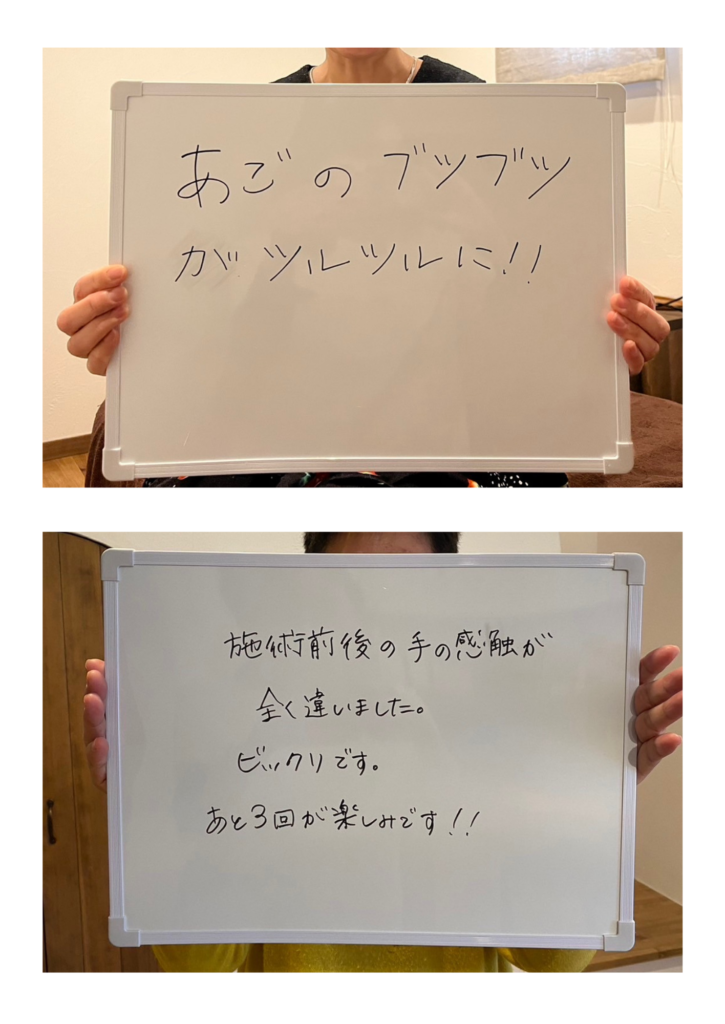 あごのブツブツ
がツルツルに!!
施術前後の手の感触が
全く違いました。
ビックリです。
あと3回が楽しみです!!